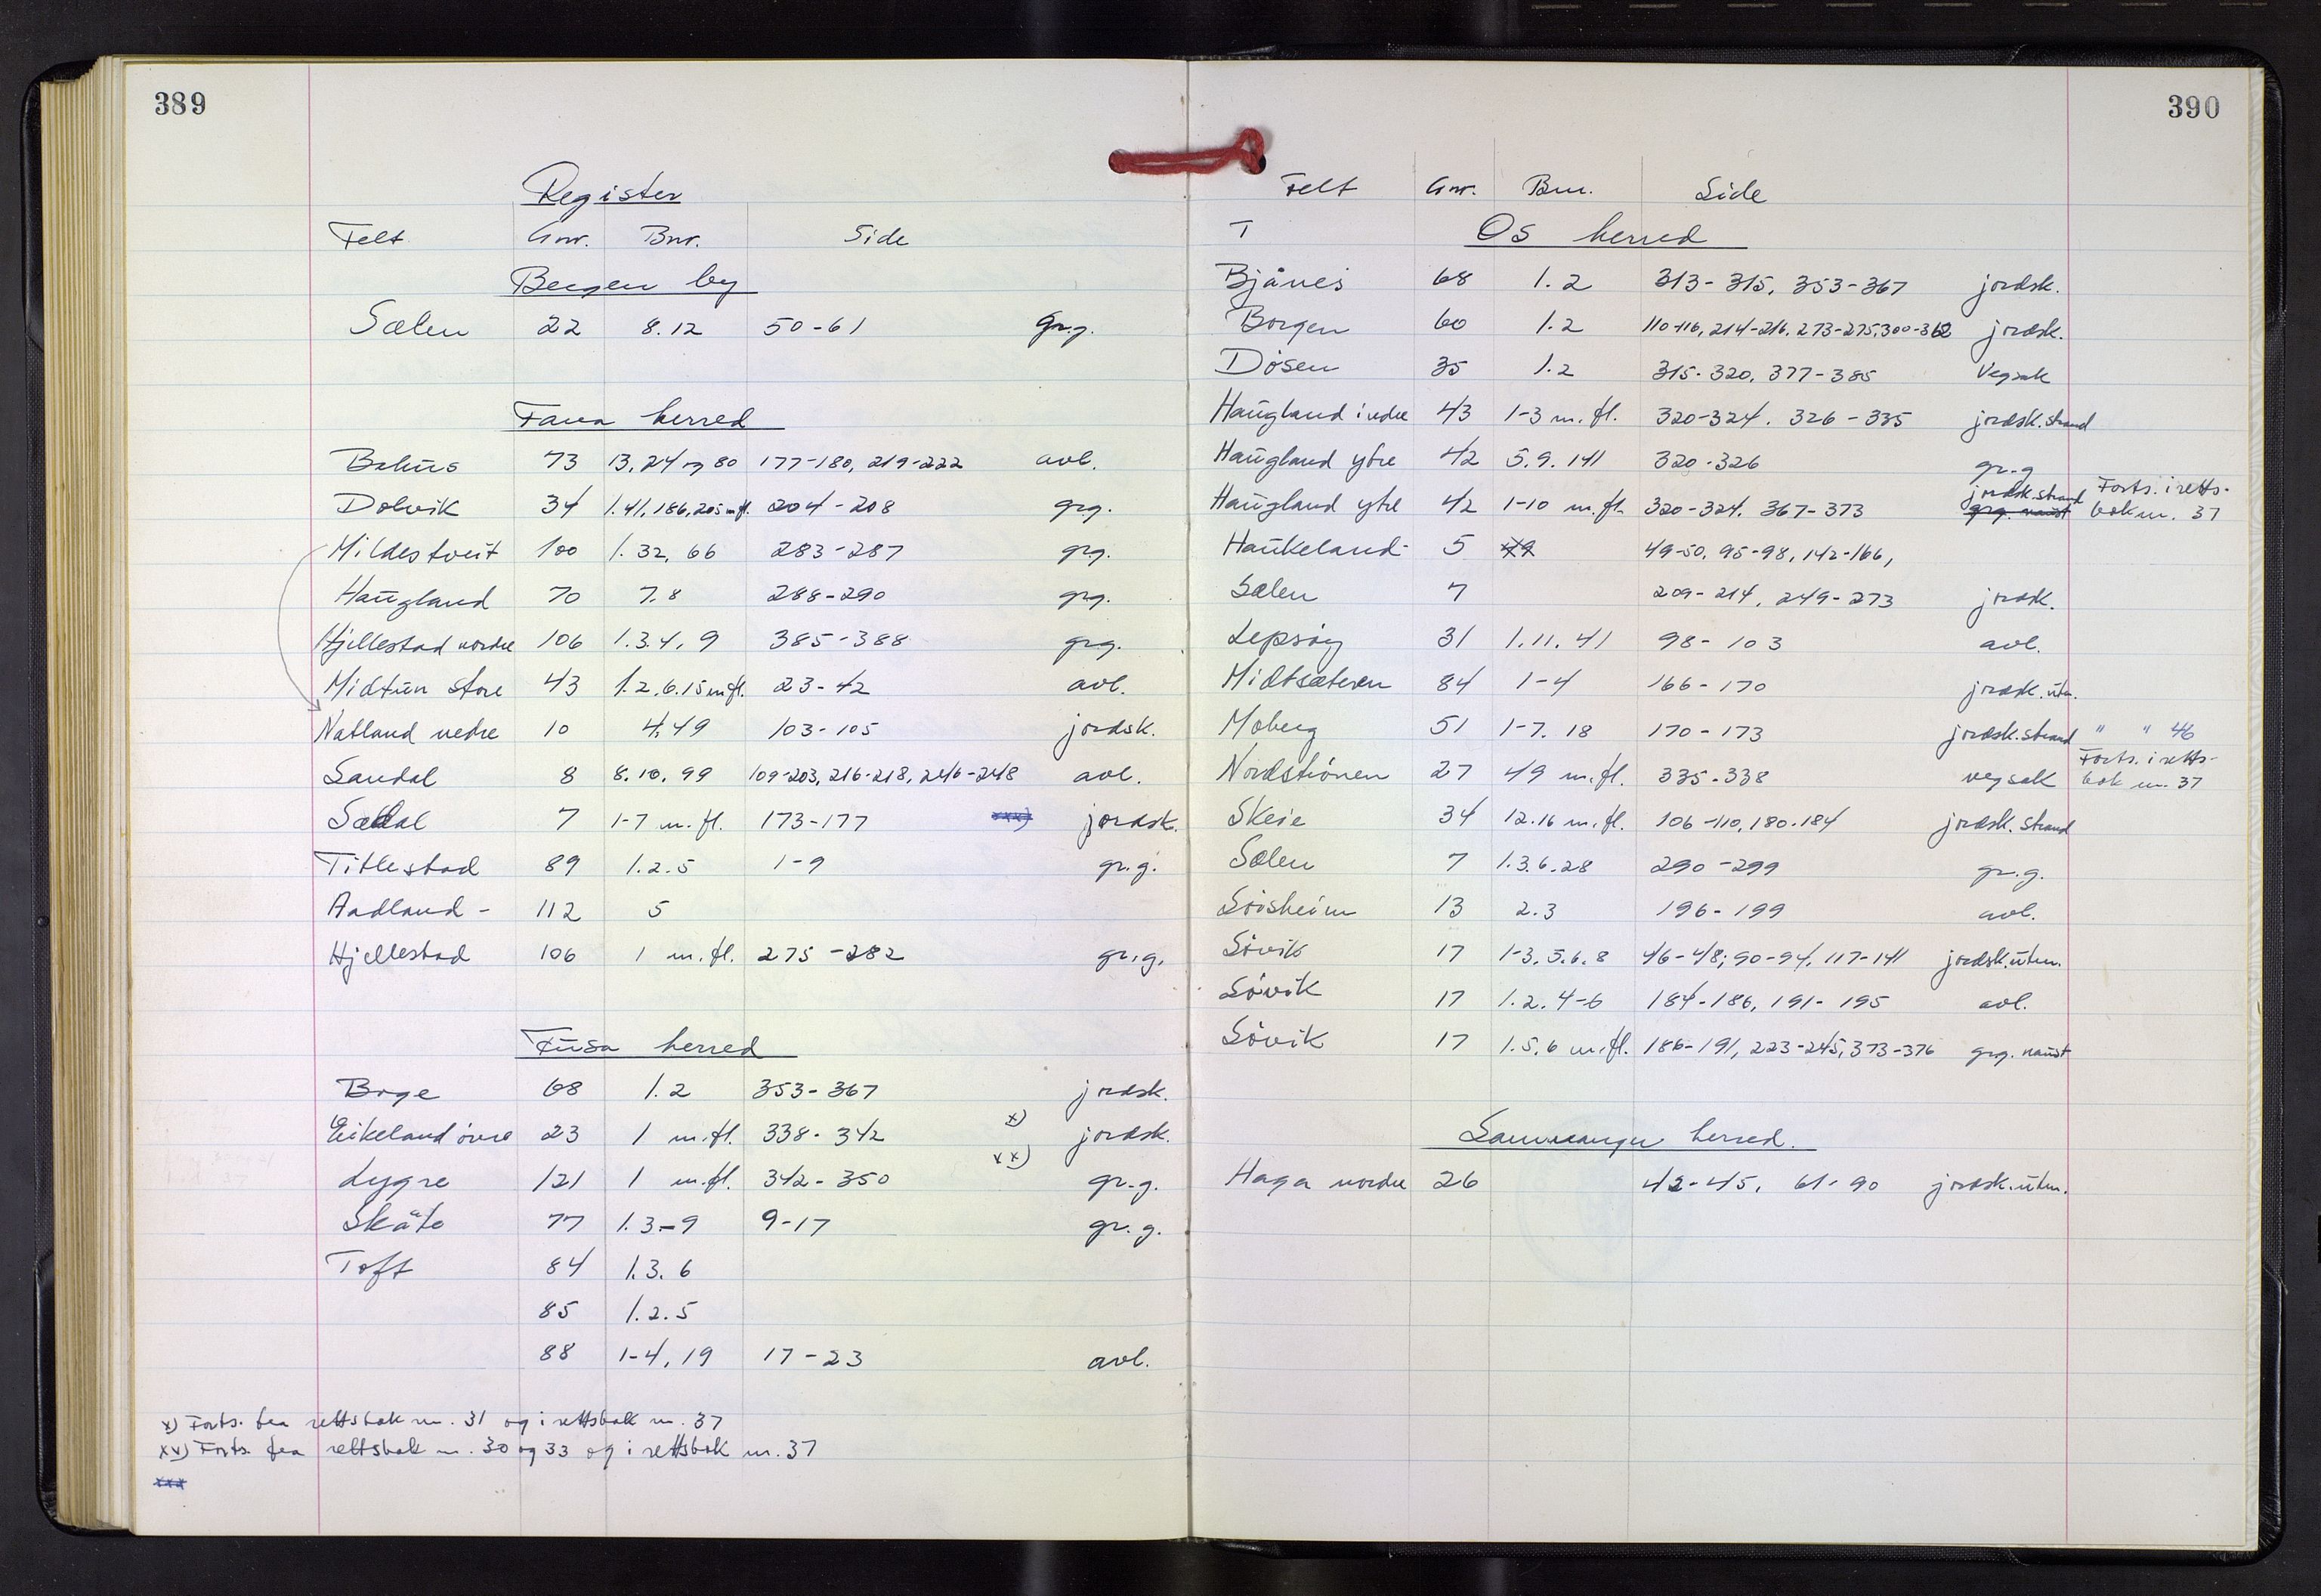 389
Register
Felt Gnr. Bnr. Side
Bergen by
Sælen 22 8.12 50-61 gr.g.
Fana herred
Birkelus 73 13, 24 og 80 177-180, 219-222 avl.
Dolvik 34 1.41, 186, 205 m.fl. 204-208 grg.
Mildestveit 100 1. 32, 66 283-287 grg.
Haugland 70 7.8 288-290 grg.
Hjellestad nordre 106 1.3.4, 9 385-388 grg.
Midtun store 43 1.2.6.15 m.fl. 23-42 avl.
Natland nedre 10 4,49 103-105 jordsk.
Sandal 8 8.10, 99 109-203, 216-218, 246-248 avl.
Sædal 7 1-7 m.fl. 173-177 xxx) jordsk.
Titlestad 89 1.2.5 1-9 gr.g.
Aadland - 112 5
Hjellestad 106 1 m.fl. 275-282 gr.g.
Fusa herred
Berge 68 1.2 353-367 jordsk.
Eikeland övre 23 1 m.fl. 338-342 x) jordsk.
Lygre 121 1 m.fl. 342-350 xx) gr.g.
Skåte 77 1.3-9 9-17 gr.g.
Toft 84 1.3.6
85 1.2.5
88 1-4, 19 17-23 avl.
x) Forts. fra rettsbok nr. 31 og i rettsbok nr. 37
xx) Forts. fra rettsbok nr. 30 og 33 og i rettsbok nr. 37
xxx
390
Felt Gnr. Bnr. Side
T Os herred
Bjånes 68 1.2 313-315, 353-367 jordsk.
Borgen 60 1.2 110-116, 214-216, 273-275, 300-362 jordsk.
Dösen 35 1.2 315-320, 377-385 Vegsak
Haugland indre 43 1-3 m.fl. 320-324. 326-335 jordsk. strand
Haugland ytre 42 5.9.141 320-326 gr.g
Haugland ytre 42 1-10 m.fl. 320-324. 367-373 jordsk. strand grg. naust Forts. i retts-
bok nr. 37
Haukeland- 5 49 49-50, 95-98, 142-166,
Sælen 7 209-214, 249-273 jordsk.
Lepsöy 31 1.11.41 98-103 avl.
Midtsæteren 84 1-4 166-170 jordsk. utm.
Moberg 51 1-7. 18 170-173 jordsk. strand " " 46
Nordströnen 27 49 m.fl. 335-338 vegsak Forts. i retts-
bok nr. 37
Skeie 34 12.16 m.fl. 106-110, 180-184 jordsk. strand
Sælen 7 1.3.6.28 290-299 gr.g.
Sörsheim 13 2.3 196-199 avl.
Sövik 17 1-3.5.6.8 46-48; 90-94, 117-141 jordsk. utm.
Sövik 17 1.2.4-6 184-186, 191-195 avl.
Sövik 17 1.5,6 m.fl. 186-191, 223-245, 373-376 grg. naust
Samnanger herred.
Haga nordre 26 42-45, 61-90 jordsk. utm.